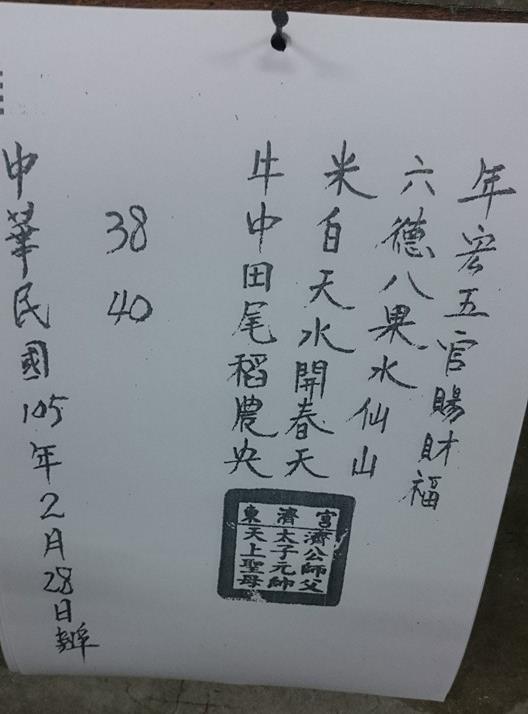 年宏五官賜財福
六德八果水仙山
米自天水開春天
牛中田尾稻農央
東濟宮
濟公師父
太子元帥
天上聖母
38 40
中華民國105年2月28日